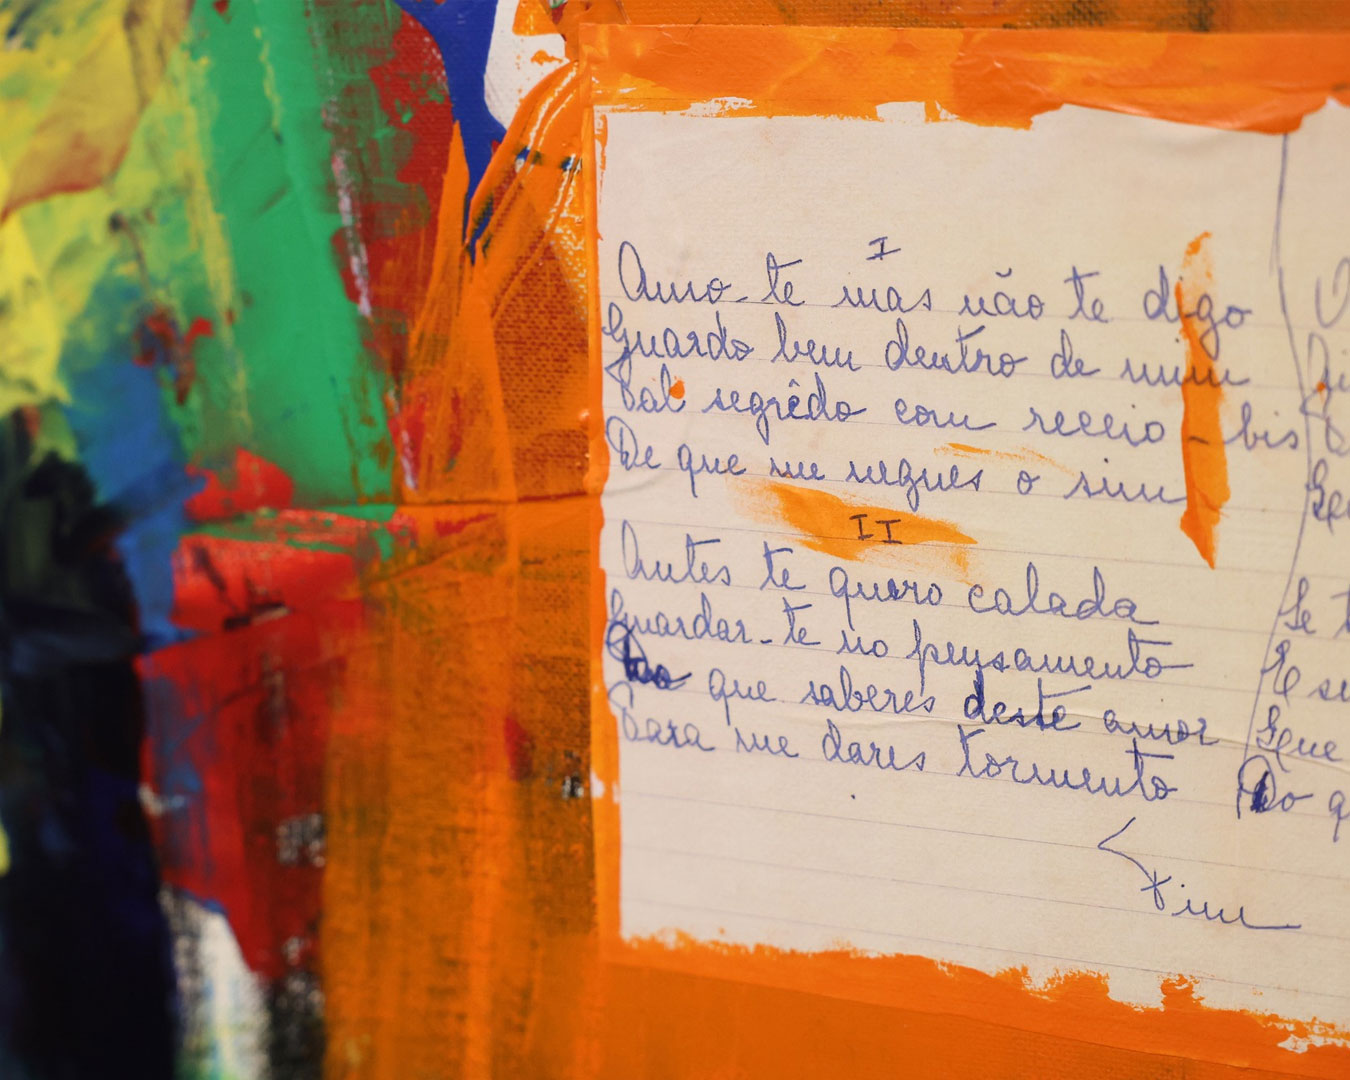 I
Amo-te mas não te digo
Guardo bem dentro de mim
Tal segrêdo com receio - bis
De que me negues o sim
II
Antes te quero calada
Guardar-te no pensamento
Do que saberes deste amor
Para me dares tormento
Fim
Se t
E se
Que
Do q